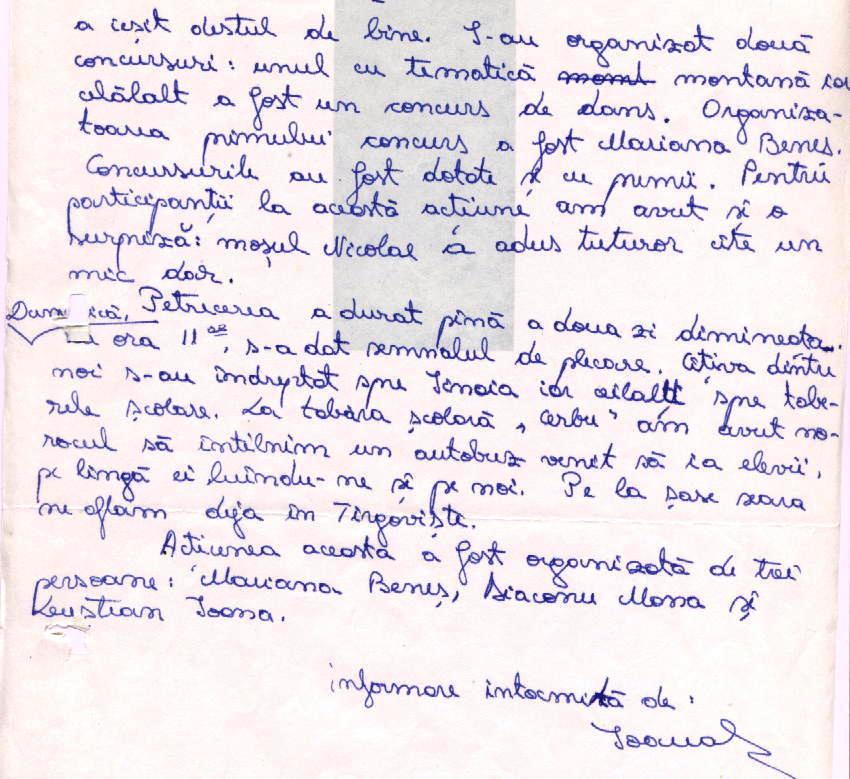 a ieșit destul de bine. S-au organizat două
concursuri: unul cu tematică montană iar
celălalt a fost un concurs de dans. Organiza-
toarea primului concurs a fost Mariana Beneș.
Concursurile au fost dotate și cu premii. Pentru
participanții la această acțiune am avut și o
surpriză: moșul Nicolae a adus tuturor cîte un
mic dar.
Petrecerea a durat pînă a doua zi dimineața.
ora 11 s-a dat semnalul de plecare. Cîtiva dintre
noi s-au îndreptat spre Sinaia iar ceilalți spre tabe-
rele școlare. La tabăra școlară „Cerbu" am avut no-
rocul să întîlnim un autobuz venit să ia elevii,
pe lîngă ei luîndu-ne și pe noi. Pe la șase seara
ne aflam deja în Tîrgoviște.
Acțiunea aceasta a fost organizată de trei
persoane: Mariana Beneș, Diaconu Mona și
Ioana.
informare întocmită de:
Ioana